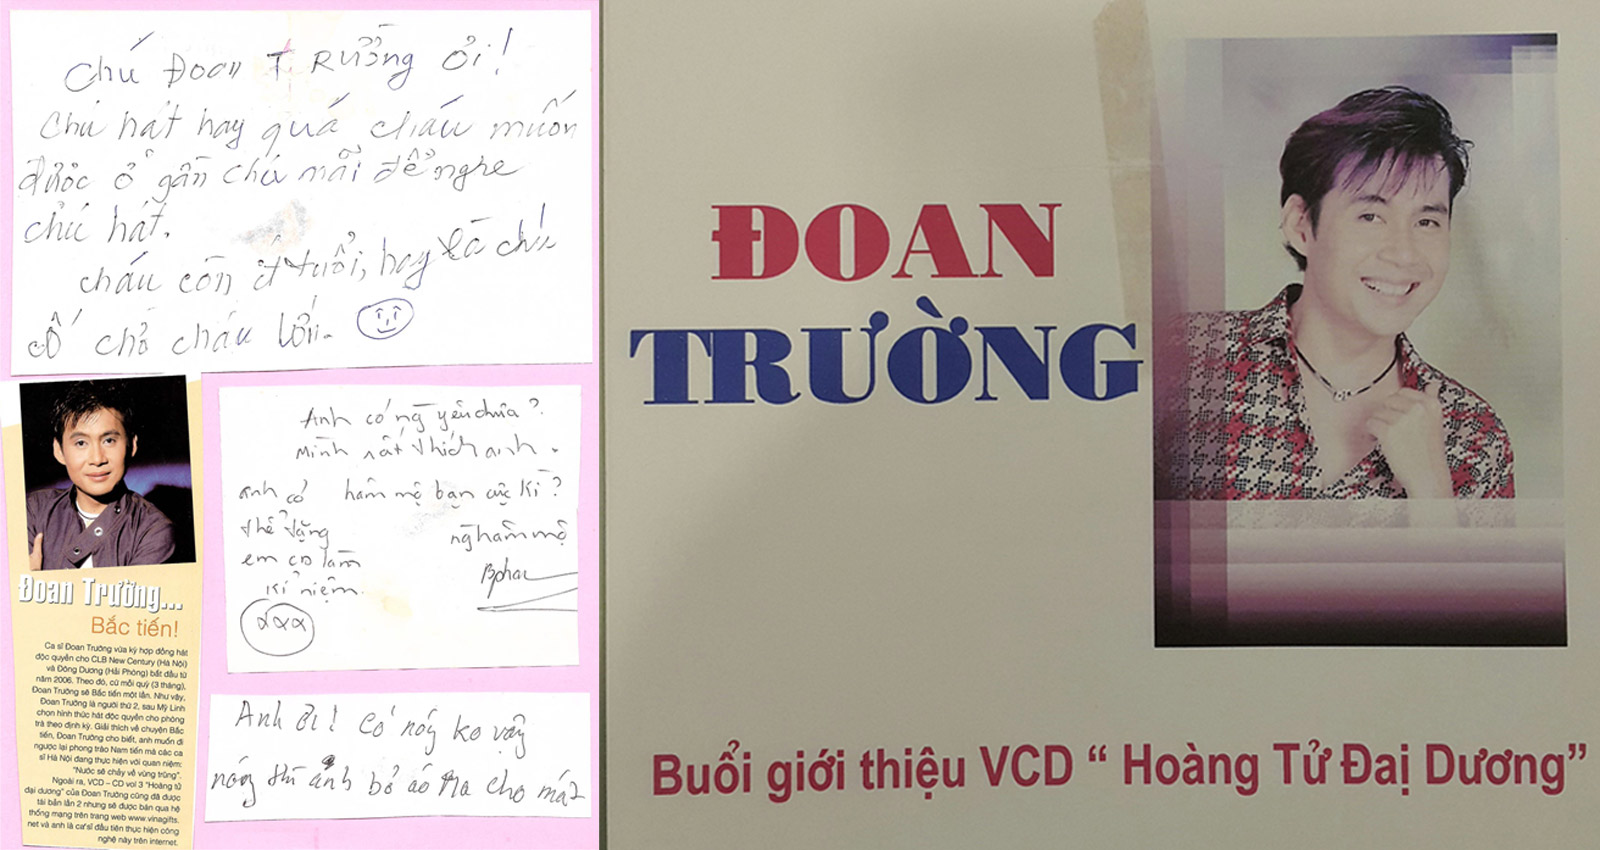 Chú Đoan Trường ơi!
Chú hát hay quá cháu muốn
được ở gần chú mãi để nghe
chú hát.
cháu còn ít tuổi, hay là chú
cố chờ cháu lớn.
Đoan Trường...
Bắc tiến!
Ca sĩ Đoan Trường vừa ký hợp đồng hát
độc quyền cho CLB New Century (Hà Nội)
và Đông Dương (Hải Phòng) bắt đầu từ
năm 2006. Theo đó, cứ mỗi quý (3 tháng),
Đoan Trường sẽ Bắc tiến một lần. Như vậy,
Đoan Trường là người thứ 2, sau Mỹ Linh
chọn hình thức hát độc quyền cho phòng
trà theo định kỳ. Giải thích về chuyện Bắc
tiến, Đoan Trường cho biết, anh muốn đi
ngược lại phong trào Nam tiến mà các ca
sĩ Hà Nội đang thực hiện với quan niệm:
"Nước sẽ chảy về vùng trũng".
Ngoài ra, VCD – CD vol 3 "Hoàng tử
đại dương" của Đoan Trường cũng đã được
tái bản lần 2 nhưng sẽ được bán qua hệ
thống mạng trên trang web www.vinagifts.
net và anh là ca sĩ đầu tiên thực hiện công
nghệ này trên internet.
Anh có ng yêu chưa?
Mình rất thích anh.
hâm mộ bạn cực kì?
ng hâm mộ
anh có
thể tặng
em CD làm
kỉ niệm.
Anh ơi! Có nóng ko vậy
nóng thì anh bỏ áo ra cho mát
ĐOAN
TRƯỜNG
Buổi giới thiệu VCD “ Hoàng Tử Đaị Dương”